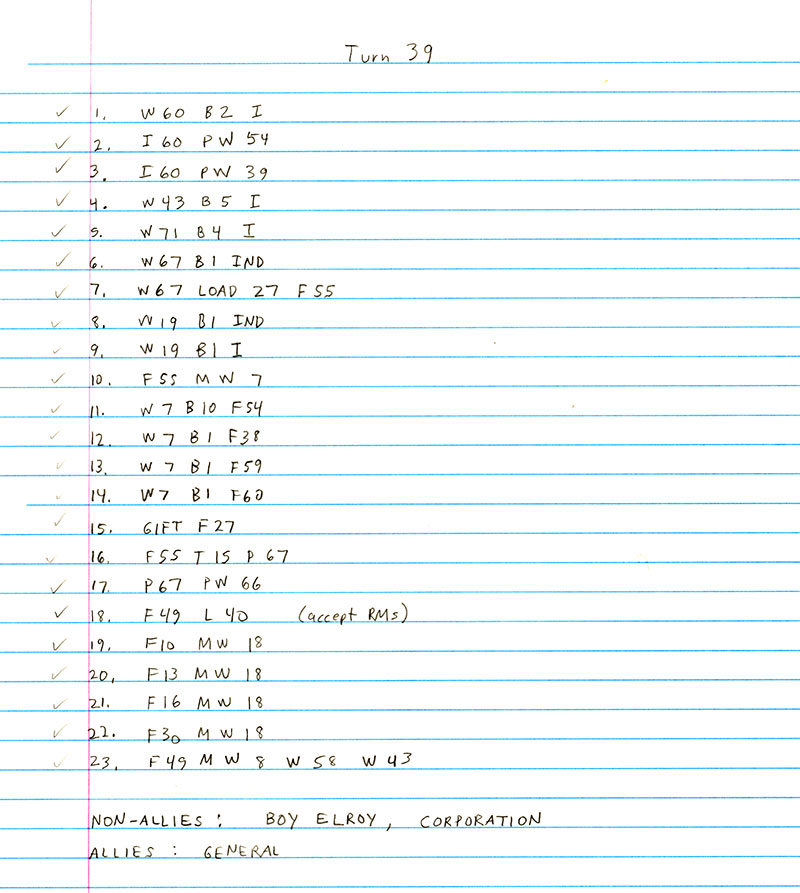 Turn 39
✓ 1. W60 B2 I
✓ 2. I60 PW 54
✓ 3. I60 PW 39
✓ 4. W43 B5 I
✓ 5. W71 B4 I
✓ 6. W67 B1 IND
✓ 7. W67 LOAD 27 F55
✓ 8. W19 B1 IND
✓ 9. W19 B1 I
✓ 10. F55 M W 7
✓ 11. W7 B10 F54
✓ 12. W7 B1 F38
✓ 13. W7 B1 F59
✓ 14. W7 B1 F60
✓ 15. GIFT F27
✓ 16. F55 T15 P67
✓ 17. P67 PW 66
✓ 18. F49 L 40 (accept RMs)
✓ 19. F10 M W 18
✓ 20. F13 M W 18
✓ 21. F16 M W 18
✓ 22. F30 M W 18
✓ 23. F49 M W 8 W 58 W 43
NON-ALLIES: BOY ELROY, CORPORATION
ALLIES: GENERAL